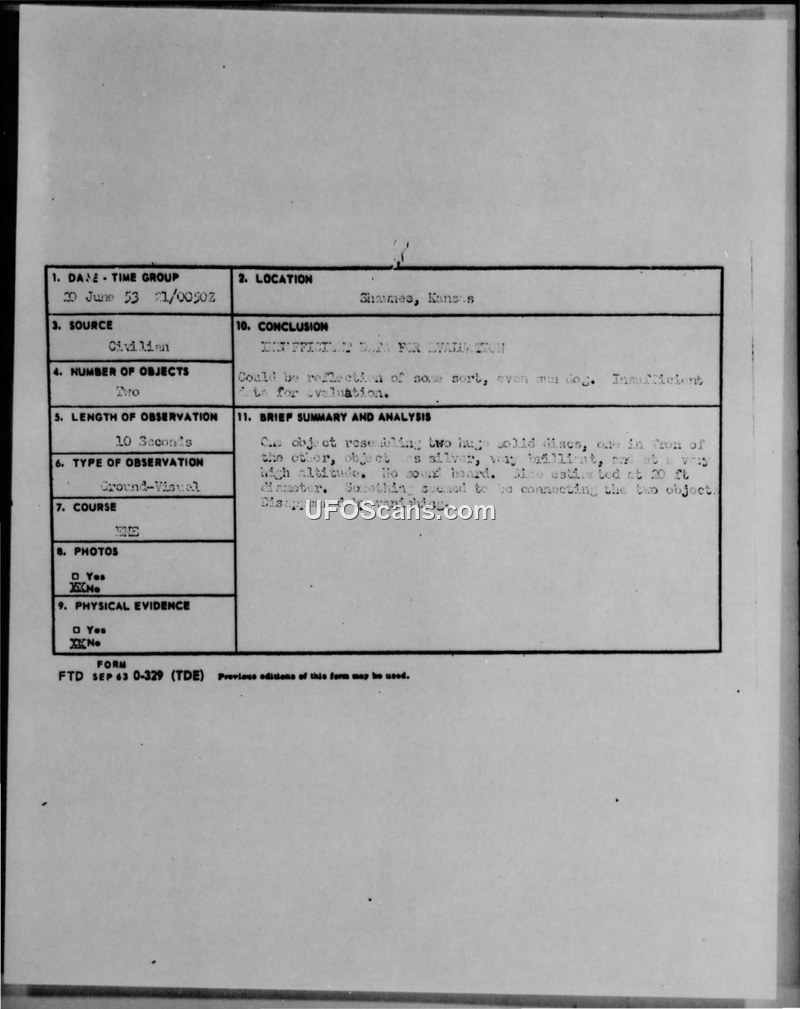 1. DATE - TIME GROUP
20 June 53 21/0050Z
2. LOCATION
Shawnee, Kansas
3. SOURCE
Civilian
10. CONCLUSION
INSUFFICIENT DATA FOR EVALUATION
Could be reflection of some sort, even sun dog. Insufficient
data for evaluation.
4. NUMBER OF OBJECTS
Two
5. LENGTH OF OBSERVATION
10 Seconds
11. BRIEF SUMMARY AND ANALYSIS
One object resembling two huge solid discs, one in fron of
the other, object was silver, very brilliant, and at a very
high altitude. No sound heard. Size estimated at 20 ft
diameter. Something seemed to be connecting the two object.
Disappeared by vanishing.
6. TYPE OF OBSERVATION
Ground-Visual
7. COURSE
8. PHOTOS
□ Yes
XX No
9. PHYSICAL EVIDENCE
□ Yes
XX No
UFOScans.com
FORM
FTD SEP 63 0-329 (TDE) Previous editions of this form may be used.